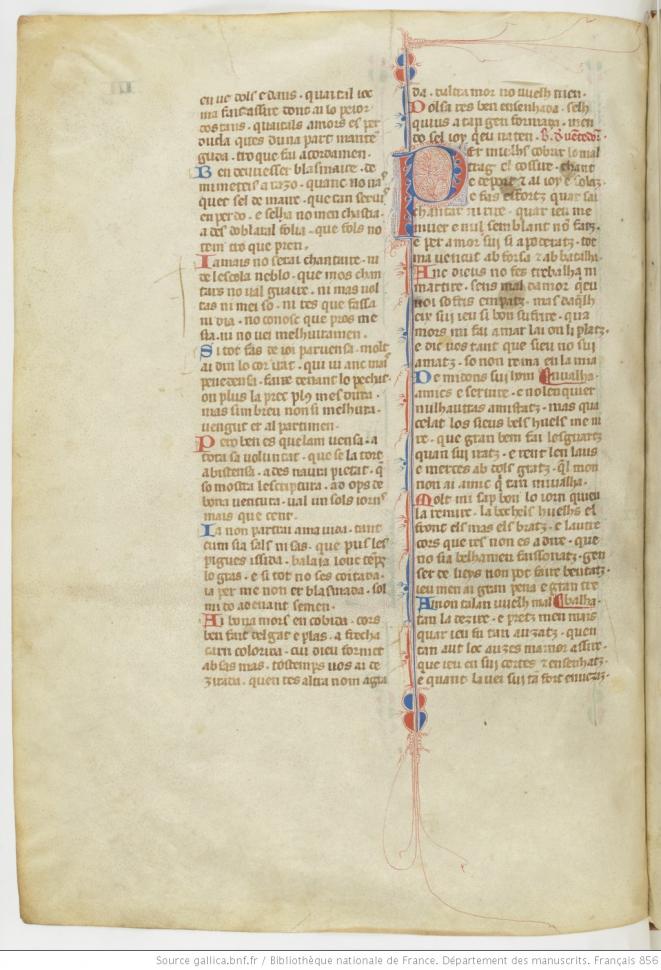 en ue cols e daus . quar tal ioc
ma fait assire donc ai lo peior
dos daus . quaitals amors es per
duda ques duna part mante
guda . tro que fai acordamen .
B en deuri esser blasmaire . de
mi meteis a razo . quanc no na
quer sel de maire . que tan serui
en perdo . e selha no men chastia
a des doblara l folia . que fols no
tem tro que pren .
I amais no serai chantaire . ni
de lescola neblo . que mos chan
tars no val guaire . ni mas uol
tas ni mei so . ni res que fassa
ni dia . no conosc que pros me
sia . ni no uei melhuramen .
S i tot fas de ioi paruensa . molt
ai din lo cor irat . qui ui anc mai
penedensa . faire denant lo pechat
on plus la prec plus mes dura .
mas sim breu non si melhura .
uengut er al partimen .
P ero ben es quelam uensa . a
tota sa voluntat . que se la tort
abistensa . ades naura pietat . q
so mostra lescriptura . ad ops de
bona uentura . ual un sols iorns
mais que cent .
I a non partrai a ma uida . tant
cum sia sals ni sas . que pus les
pigues issida . balaia lonc temps
lo gras . e si tot no ses coitada .
ia per me non er blasmada . sol
mi do aenant semen .
A i bona mors encobida . cors
ben fait delgat e plas . a frescha
carn colorida . cui dieu formet
ab sas mas . tostemps uos ai de
zirada . quen res altra nom agra
da . daltra mor no uuelh nien .
D olsa res ben ensenhada . selh
quius a tan gen formada . men
do sel ioy qeu naten .
P er miells cobrir lo mal
trag el cossire . chant
e deport z ai ioy e solatz .
e fas esfortz quar sai
chantar ni rire . quar ieu me
muer e nul semblant non fatz .
e per amor sui si apoderatz . tot
ma uencut ab forsa z ab batalha .
A nc dieus no fes trebalha ni
martire . sens mal damor queu
noi sofris en patz . mas daqelh
eix sui ieu si bon sufrire . qua
mors mi fai amar lai on li platz .
e dic uos tant que sieu no sui
amatz . so non rema en la mia
D e midons sui hom nualha .
amics e seruire . e nolen quier
nulh autras amistatz . mas qua
celat los sieus bels huels me ui
re . que gran bem fai lesguartz
quan sui iratz . e rent len laus
e merces ab cols gratz . ql mon
non ai amic q tan mi ualha .
M olt mi sap bon lo iorn quieu
la remire . la bocels huelhs el
front els mas els bratz . e lautre
cors que res non es a dire . que
no sia belhamen faissonatz . gen
ser de lieys non poc faire beutatz .
ieu men ai gran pena e gran tre
A mon talan uuelh mal balha .
tan la dezire . e pretz men mais
quar ieu fu tan auzatz . quen
tan aut loc auzes mamor assire .
que ieu en sui cortes z ensenhatz .
e quant la uei sui ta fort enueiatz .
Source gallica.bnf.fr / Bibliothèque nationale de France. Département des manuscrits. Français 856